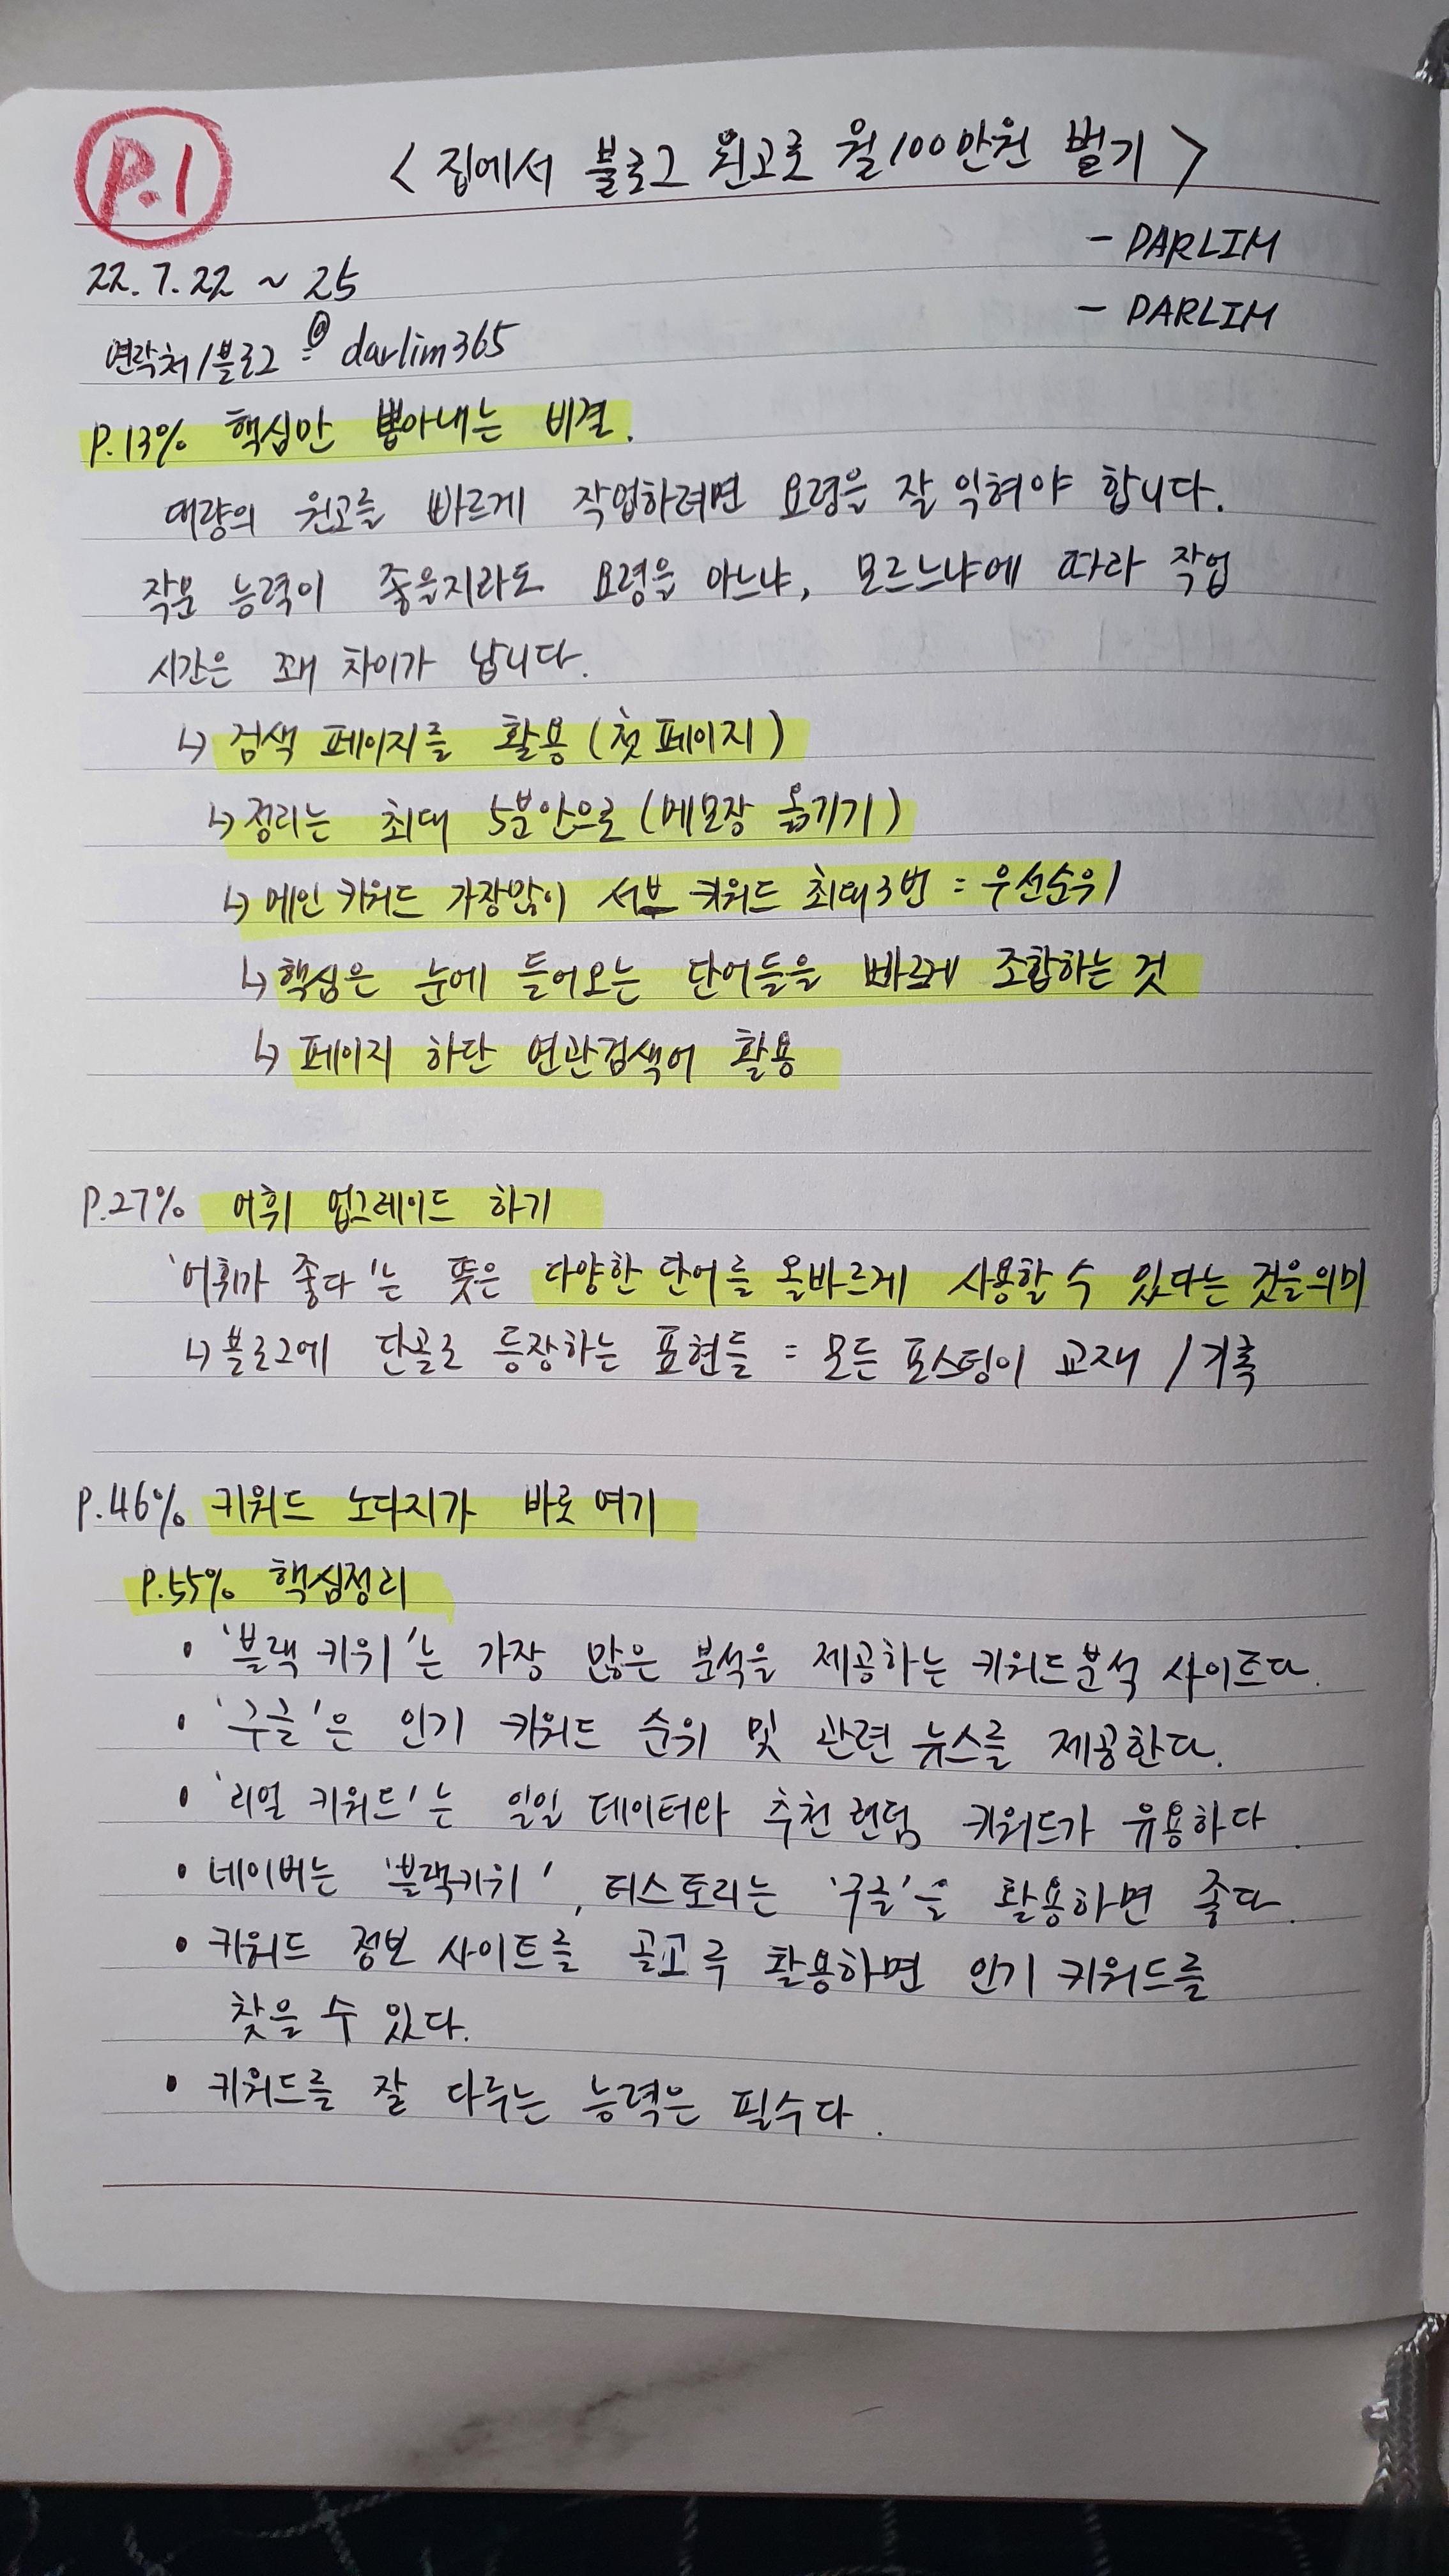 P.1
< 집에서 블로그 원고로 월100만원 벌기 >
- DARLIM
22. 7. 22 ~ 25
- DARLIM
연락처/블로그 @ darlim365
P.13% 핵심만 뽑아내는 비결.
대량의 원고를 빠르게 작업하려면 요령을 잘 익혀야 합니다.
작문 능력이 좋을지라도 요령을 아느냐, 모르느냐에 따라 작업
시간은 꽤 차이가 납니다.
↳ 검색 페이지를 활용 (첫 페이지)
↳ 정리는 최대 5분안으로 (메모장 옮기기)
↳ 메인 키워드 가장많이 서브 키워드 최대3번 = 우선순위
↳ 핵심은 눈에 들어오는 단어들을 빠르게 조합하는 것
↳ 페이지 하단 연관검색어 활용
P.27% 어휘 업그레이드 하기
'어휘가 좋다'는 뜻은 다양한 단어를 올바르게 사용할 수 있다는 것을의미
↳ 블로그에 단골로 등장하는 표현들 = 모든 포스팅이 교재 /기록
P.46% 키워드 노다지가 바로 여기
P.55% 핵심정리
• '블랙 키위'는 가장 많은 분석을 제공하는 키워드분석 사이트다.
• '구글'은 인기 키워드 순위 및 관련 뉴스를 제공한다.
• '리얼 키워드'는 일일 데이터와 추천 랜덤 키워드가 유용하다.
• 네이버는 '블랙키위', 티스토리는 '구글'을 활용하면 좋다.
• 키워드 정보 사이트를 골고루 활용하면 인기 키워드를
찾을 수 있다.
• 키워드를 잘 다루는 능력은 필수다.